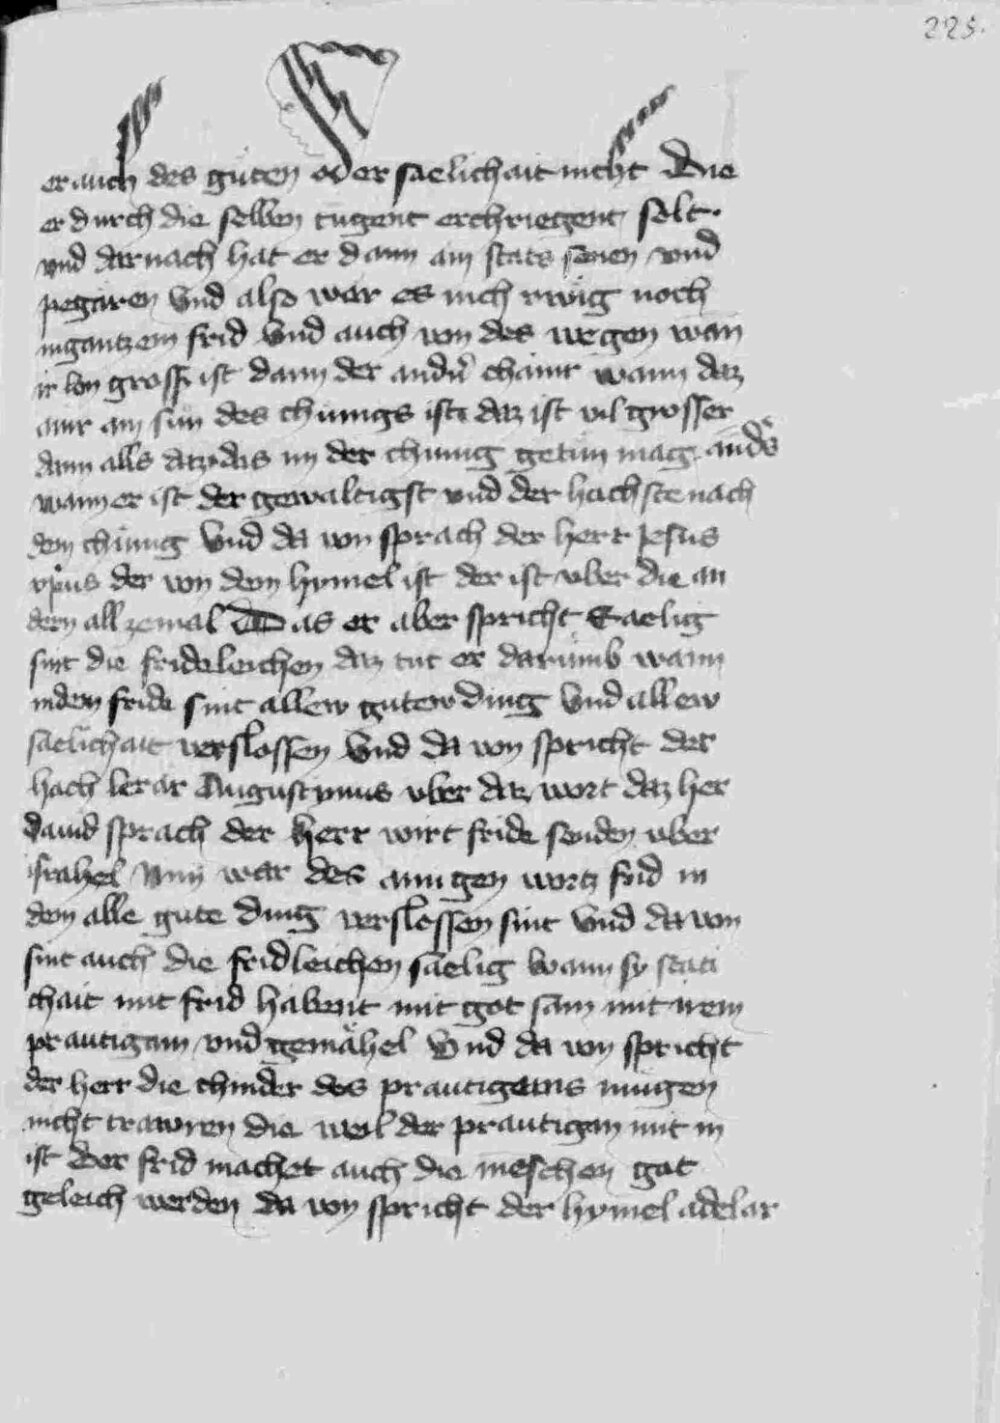 225.
er auch des guten oder saelichait nicht Die
er durch die selben tugent erchriegent solt.
vnd darnach hat er dann ain stats senen vnd
pegaren Vnd also war es nich rwig noch
in gantzem frid Vnd auch von des wegen wan
ir lon gross ist dann der andn̄ chainr wann daz
ainr ain sun des chunigs ist daz ist vil grosser
dann alls daz das im der chunig getun mag anders
wann er ist der gewaltigst vnd der hachste nach
dem chunig Vnd da von sprach der herr Jesus
xp̄us der von dem hymel ist der ist vber die an
dern all zemal Das er aber spricht Saelig
sint die frideleichen daz tut er darumb wann
in dem fride sint allew gutew ding Vnd allew
saelichait verslossen Vnd da von spricht der
hach lerar Augustinus vber daz wort daz her
dauid sprach der herr wirt fride senden vber
israhel Nim war des ainigen wortz frid in
dem alle gute ding verslossen sint Vnd da von
sint auch die fridleichen saelig Wann sy stati
chait mit frid habent mit got sam mit irem
prautigam vnd gemahel Vnd da von spricht
der herr die chinder des prautigams mugen
nicht trawren die weil der prautigam mit in
ist Der frid machet auch die meschen got
geleich werden da von spricht der hymel adelar